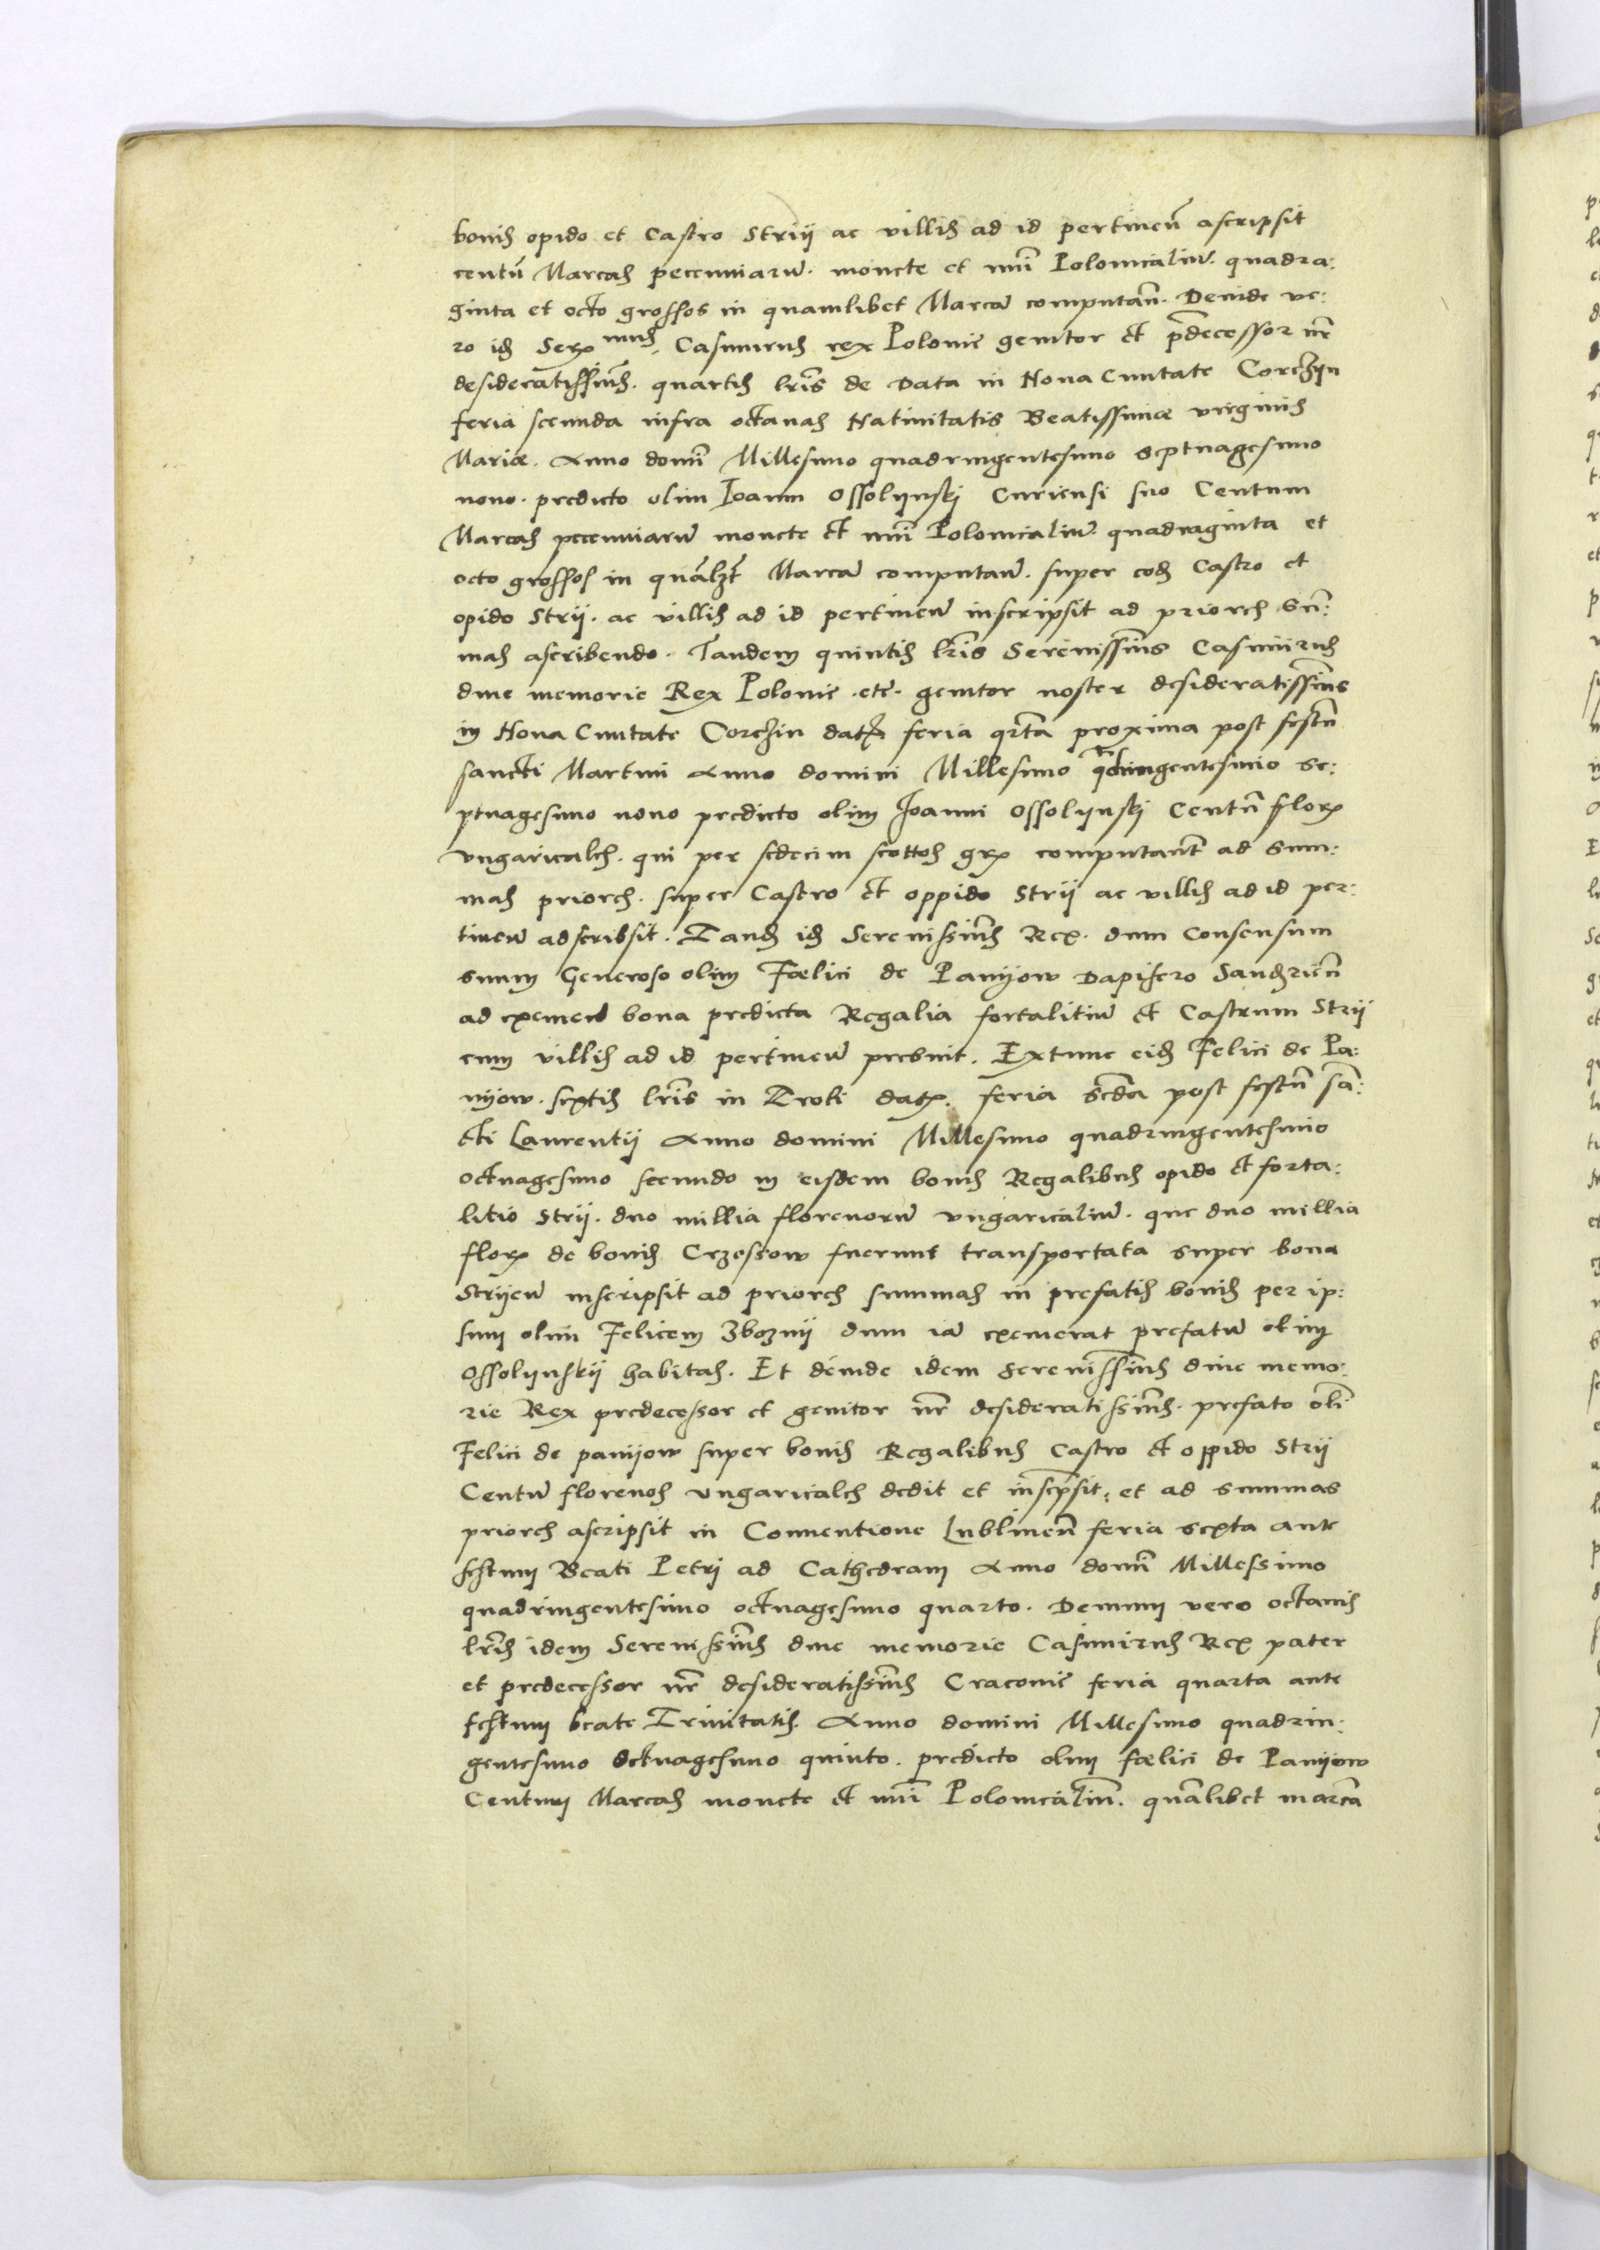 bonis opido et Castro Strii ac villis ad id pertinen̄ ascripsit
centū Marcas pecuniarū. monete et nūi Polonicaliū. quadra:
ginta et octo grossos in quamlibet Marcā computan̄. Deinde ve:
ro idē Ser. nus Casimirus rex Polonie genitor et p̄decessor nr̄
desideratissim̄. quartis lr̄is de Data in Nova Civitate Corczyn
feria secunda infra octavas Nativitatis Beatissimæ virginis
Mariæ. Anno domī Millesimo quadringentesimo septuagesimo
nono. predicto olim Ioanni Ossolynskj Curiensi suo Centum
Marcas pecuniarū monete et nūi Polonicaliū. quadraginta et
octo grossos in quālꝫt Marcā computan̄. super eodē Castro et
opido Strij. ac villis ad id pertinen̄ inscripsit ad priores sū:
mas ascribendo. Tandem quintis lr̄is Serenissim̄s Casimirus
dive memorie Rex Polonie .etc̄. genitor noster desideratissim̄s
in Nova Civitate Corczin dat. feria qrta proxima post festū
sancti Martini Anno domini Millesimo qdringentesimo se:
ptuagesimo nono predicto olim Joanni Ossolynskj Centū flor.
ungaricales. qui per sedecim scottos gr. computant̄ ad sum:
mas priores. super Castro et oppido Strij ac villis ad id per:
tinen̄ adscribsit. Tandē idē Serenissim̄s Rex. dum Consensum
suum Generoso olim Fœlici de Panijow Dapifero Sandzirien̄
ad exemen̄d bona predicta Regalia fortalitiū et Castrum Strij
cum villis ad id pertinen̄ prebuit. Extunc eidē Felici de Pa:
nijow. sextis lr̄is in Troki dat. feria sc̄da post festū sā:
cti Laurentij Anno domini Millesimo quadringentesimo
octuagesimo secundo in eisdem bonis Regalibus opido et forta:
litio Strij. duo millia florenorū ungaricaliū. que duo millia
flor. de bonis Crzessow fuerunt transportata super bona
Strijen̄ inscripsit ad priores summas in prefatis bonis per ip:
sum olim Felicem Zboznij dum iā exemerat prefatū olim
Ossolynskij habitas. Et deinde idem Serenissim̄s dive memo:
rie Rex predecessor et genitor nr̄ desideratissim̄s. prefato olī
Felici de panijow super bonis Regalibus Castro et oppido Strij
Centū florenos ungaricales dedit et inscp̄sit: et ad summas
priores ascripsit in Conventione Lublinen̄ feria sexta ante
festum Beati Petri ad Cathedram Anno domī Millessimo
quadringentesimo octuagesimo quarto. Demum vero octavis
lr̄is idem Serenissim̄s dive memorie Casimirus Rex pater
et predecessor nr̄ desideratissim̄s Cracovie feria quarta ante
festum beate Trinitatis. Anno domini Millesimo quadrin:
gentesimo octuagesimo quinto. predicto olim fœlici de Panijow
Centum Marcas monete et nūi Polonicaliū. quālibet marcā